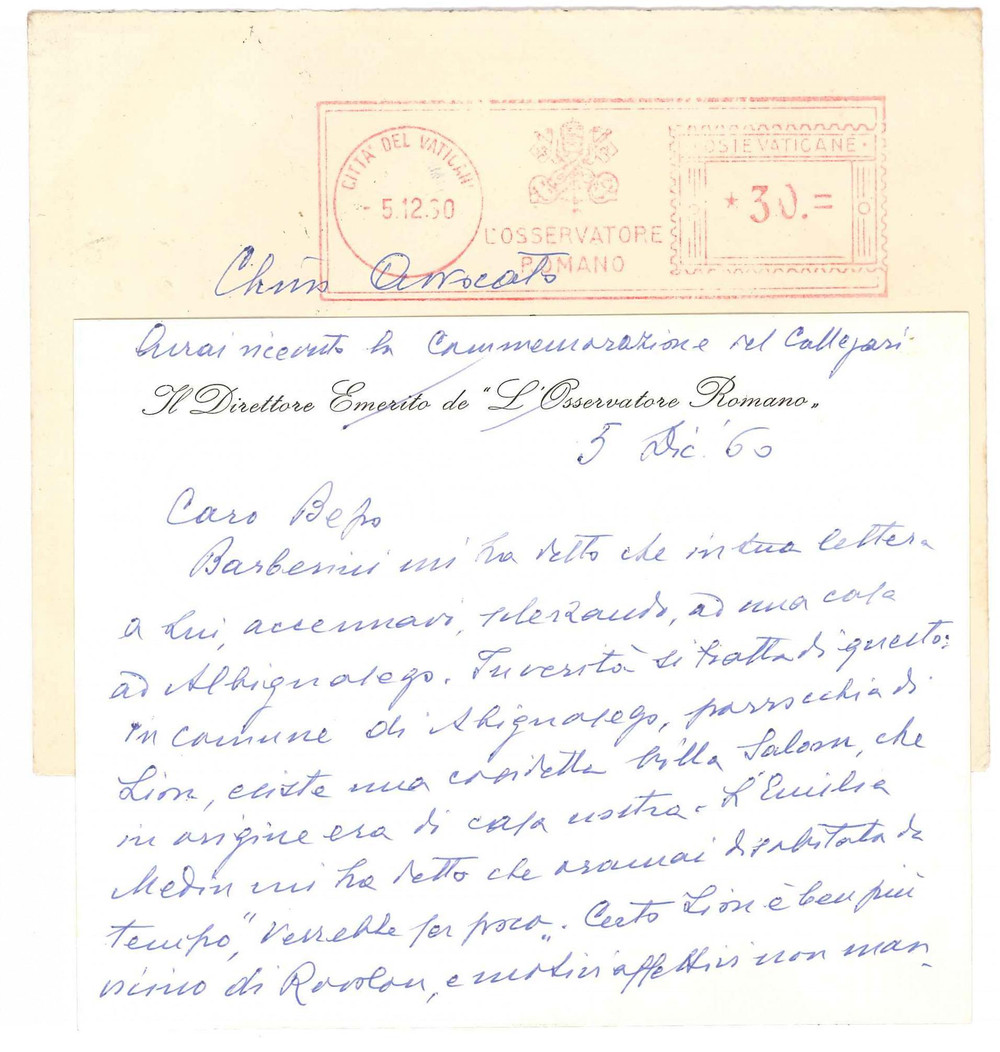 CITTA' DEL VATICAN
- 5.12.60
L'OSSERVATORE
ROMANO
POSTE VATICANE
* 30.=
Avvocato
Avrai ricevuto la Commemorazione del Callegari.
Il Direttore Emerito de "L'Osservatore Romano„
5 Dic. 60
Caro Bepo
Barberini mi ha detto che in tua lettera
a Lui, accennavi, scherzando, ad una casa
ad Albignasego. In verità si tratta di questo:
in comune di Abignasego, parrocchia di
Lion, esiste una cosidetta Villa Salom, che
in origine era di casa nostra. L'Emilia
Medin mi ha detto che oramai disabitata da
tempo, "verrebbe per poco„. Certo Lion è ben più
vicino di Rovolon, e motivi affettivi non man-